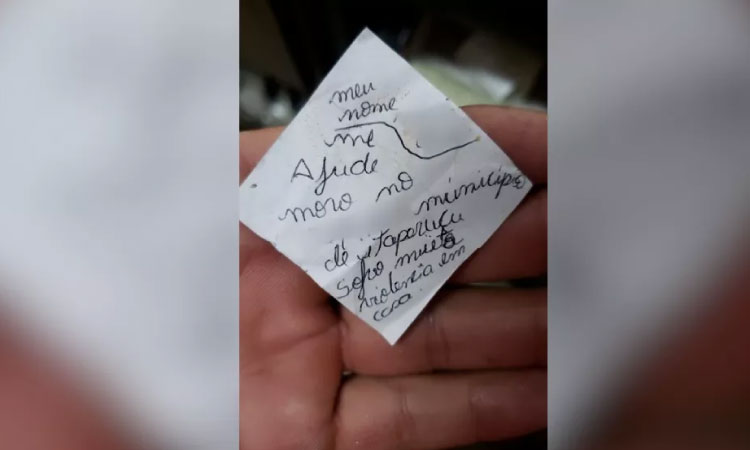 meu
nome
me
Ajude
moro no
municipio
de itaparica
sofro muita
violencia em
casa.